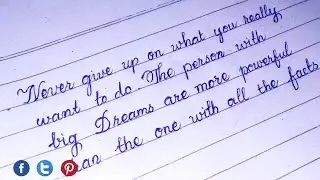 Never give up on what you really
want to do. The person with
big Dreams are more powerful
than the one with all the facts